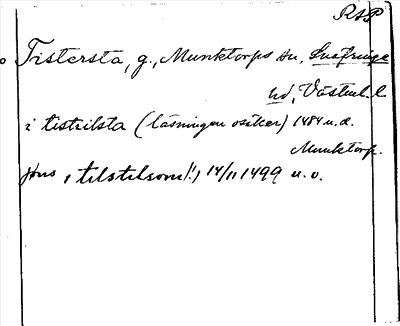 RAP
Tistersta, g., Munktorps sn, Snefringe
hd, Västml. l.
i tistrilsta (läsningen osäker) 1484 u.d.
Munktorp.
jöns , tilstilsom(!), 14/11 1499 u.o.